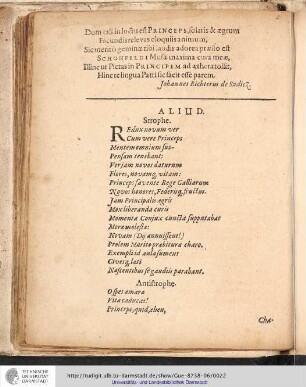 Dum eris in luctu est PRINCEPS, solaris & ægrum
Facundis relevas eloquiis animum,
Sic meritò geminæ tibi laudis adorea præsto est
SCHONFELDI Musæ maxima cura meæ,
Illinc ut Pietas in PRINCIPEM ad æthera tollit,
Hinc te lingua Patris sic facit esse parem.
Johannes Richterus de Sodicz
ALIUD.
Strophe.
REdux novum ver
Cum vere Princeps
Mentem omnium sus-
Pensam tenebant:
Ver jam novos daturum
Flores, novamq; vitam:
Princeps favente Rege Galliarum
Novos honores, Federisq; fructus.
Jam Principalis ægris
Mox liberanda curis
Momenta Conjux cuncta supputabat
Mera molesta:
Nivam (Dij annuissent!)
Prolem Marito præbitura charo,
Exempli id aula sumens
Civesq; læti
Nascentibus se gaudiis parabant.
Antistrophe.
O spes amara
Vita caducas!
Princeps, quid, eheu,
Cha-
TECHNISCHE
UNIVERSITÄT
DARMSTADT
http://tudigit.ulb.tu-darmstadt.de/show/Gue-8738-06/0022
Universitäts- und Landesbibliothek Darmstadt